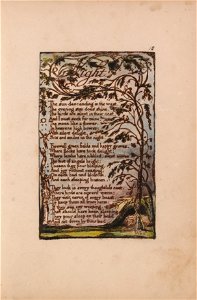 Night
The sun descending in the west
The evening star does shine
The birds are silent in their nest
And I must seek for mine
The moon like a flower
In heavens high bower
With silent delight
Sits and smiles on the night

Farewell green fields and happy groves
Where flocks have took delight
Where lambs have nibbled, silent moves
The feet of angels bright
Unseen they pour blessing
And joy without ceasing
On each bud and blossom
And each sleeping bosom

They look in every thoughtless nest
Where birds are coverd warm
They visit caves of every beast
To keep them all from harm
If they see any weeping
That should have been sleeping
They pour sleep on their head
And sit down by their bed